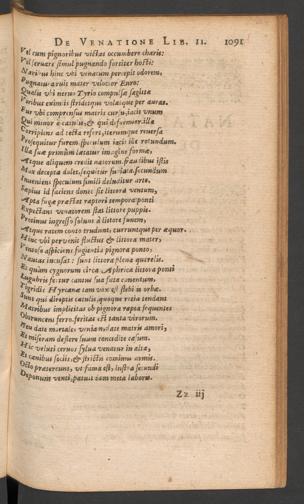 DE VENATIONE LIB. II. 1091
Vel cum pignoribus victas occumbere charis:
Vel seruare simul pugnando fortiter hosti:
Naribus hinc vbi venacum percepit odorem,
Pugnatura ruit mater velocior Euro:
Qualis vbi neruo Tyrio compulsa sagitta
Viribus eximijs stridetque volatque per auras.
Vt vbi comprensus matris cursu, iacit vnum
Qui minor è catulis, & qui deformior illa
Corripiens ad tecta refert, iterumque reuersa
Prosequitur furem, speculum iacit ille rotundum.
Illa suæ primùm lætatur imagine formæ,
Atque aliquem credit natorum
Mox decepta dolet, sequitur secundùm
Inueniens speculum simili deluditur arte.
Sæpius id faciens donec sic littora ventum,
Apta fugæ præstat raptori tempora ponti
Expectans venatorem stat littore puppis.
Protinus ingresso soluunt à littore funem,
Atque ratem conto trudunt, curruntque per æquor.
Hinc vbi peruenit fluctus & littora mater,
Vntosis aspiciens fugientia pignora pontos
Nautas incusat: sunt littora plena querelis.
Et quàm cygnorum circa Aphrica littora ponti
Lugubris fertur cantus sua fata canentum.
Tigridis Hyrcanæ tam vox est flebilis in orbe.
Sunt qui diroptis catulis, quoque retia tendant
Matribus implicitas ob pignora rapta sequentes
Obtruncens ferro. feritas est tanta virorum.
Heu date mortales veniam, date matris amori,
Et miseram desiere suum concedite casum.
Hic veluti ceruos sylua venatur in alta,
Et canibus socijs, & strictis comminus armis.
Octo præterunt, vt fama est, lustra secundi
Deponunt venti, patuit tam meta labore.
Zz iij